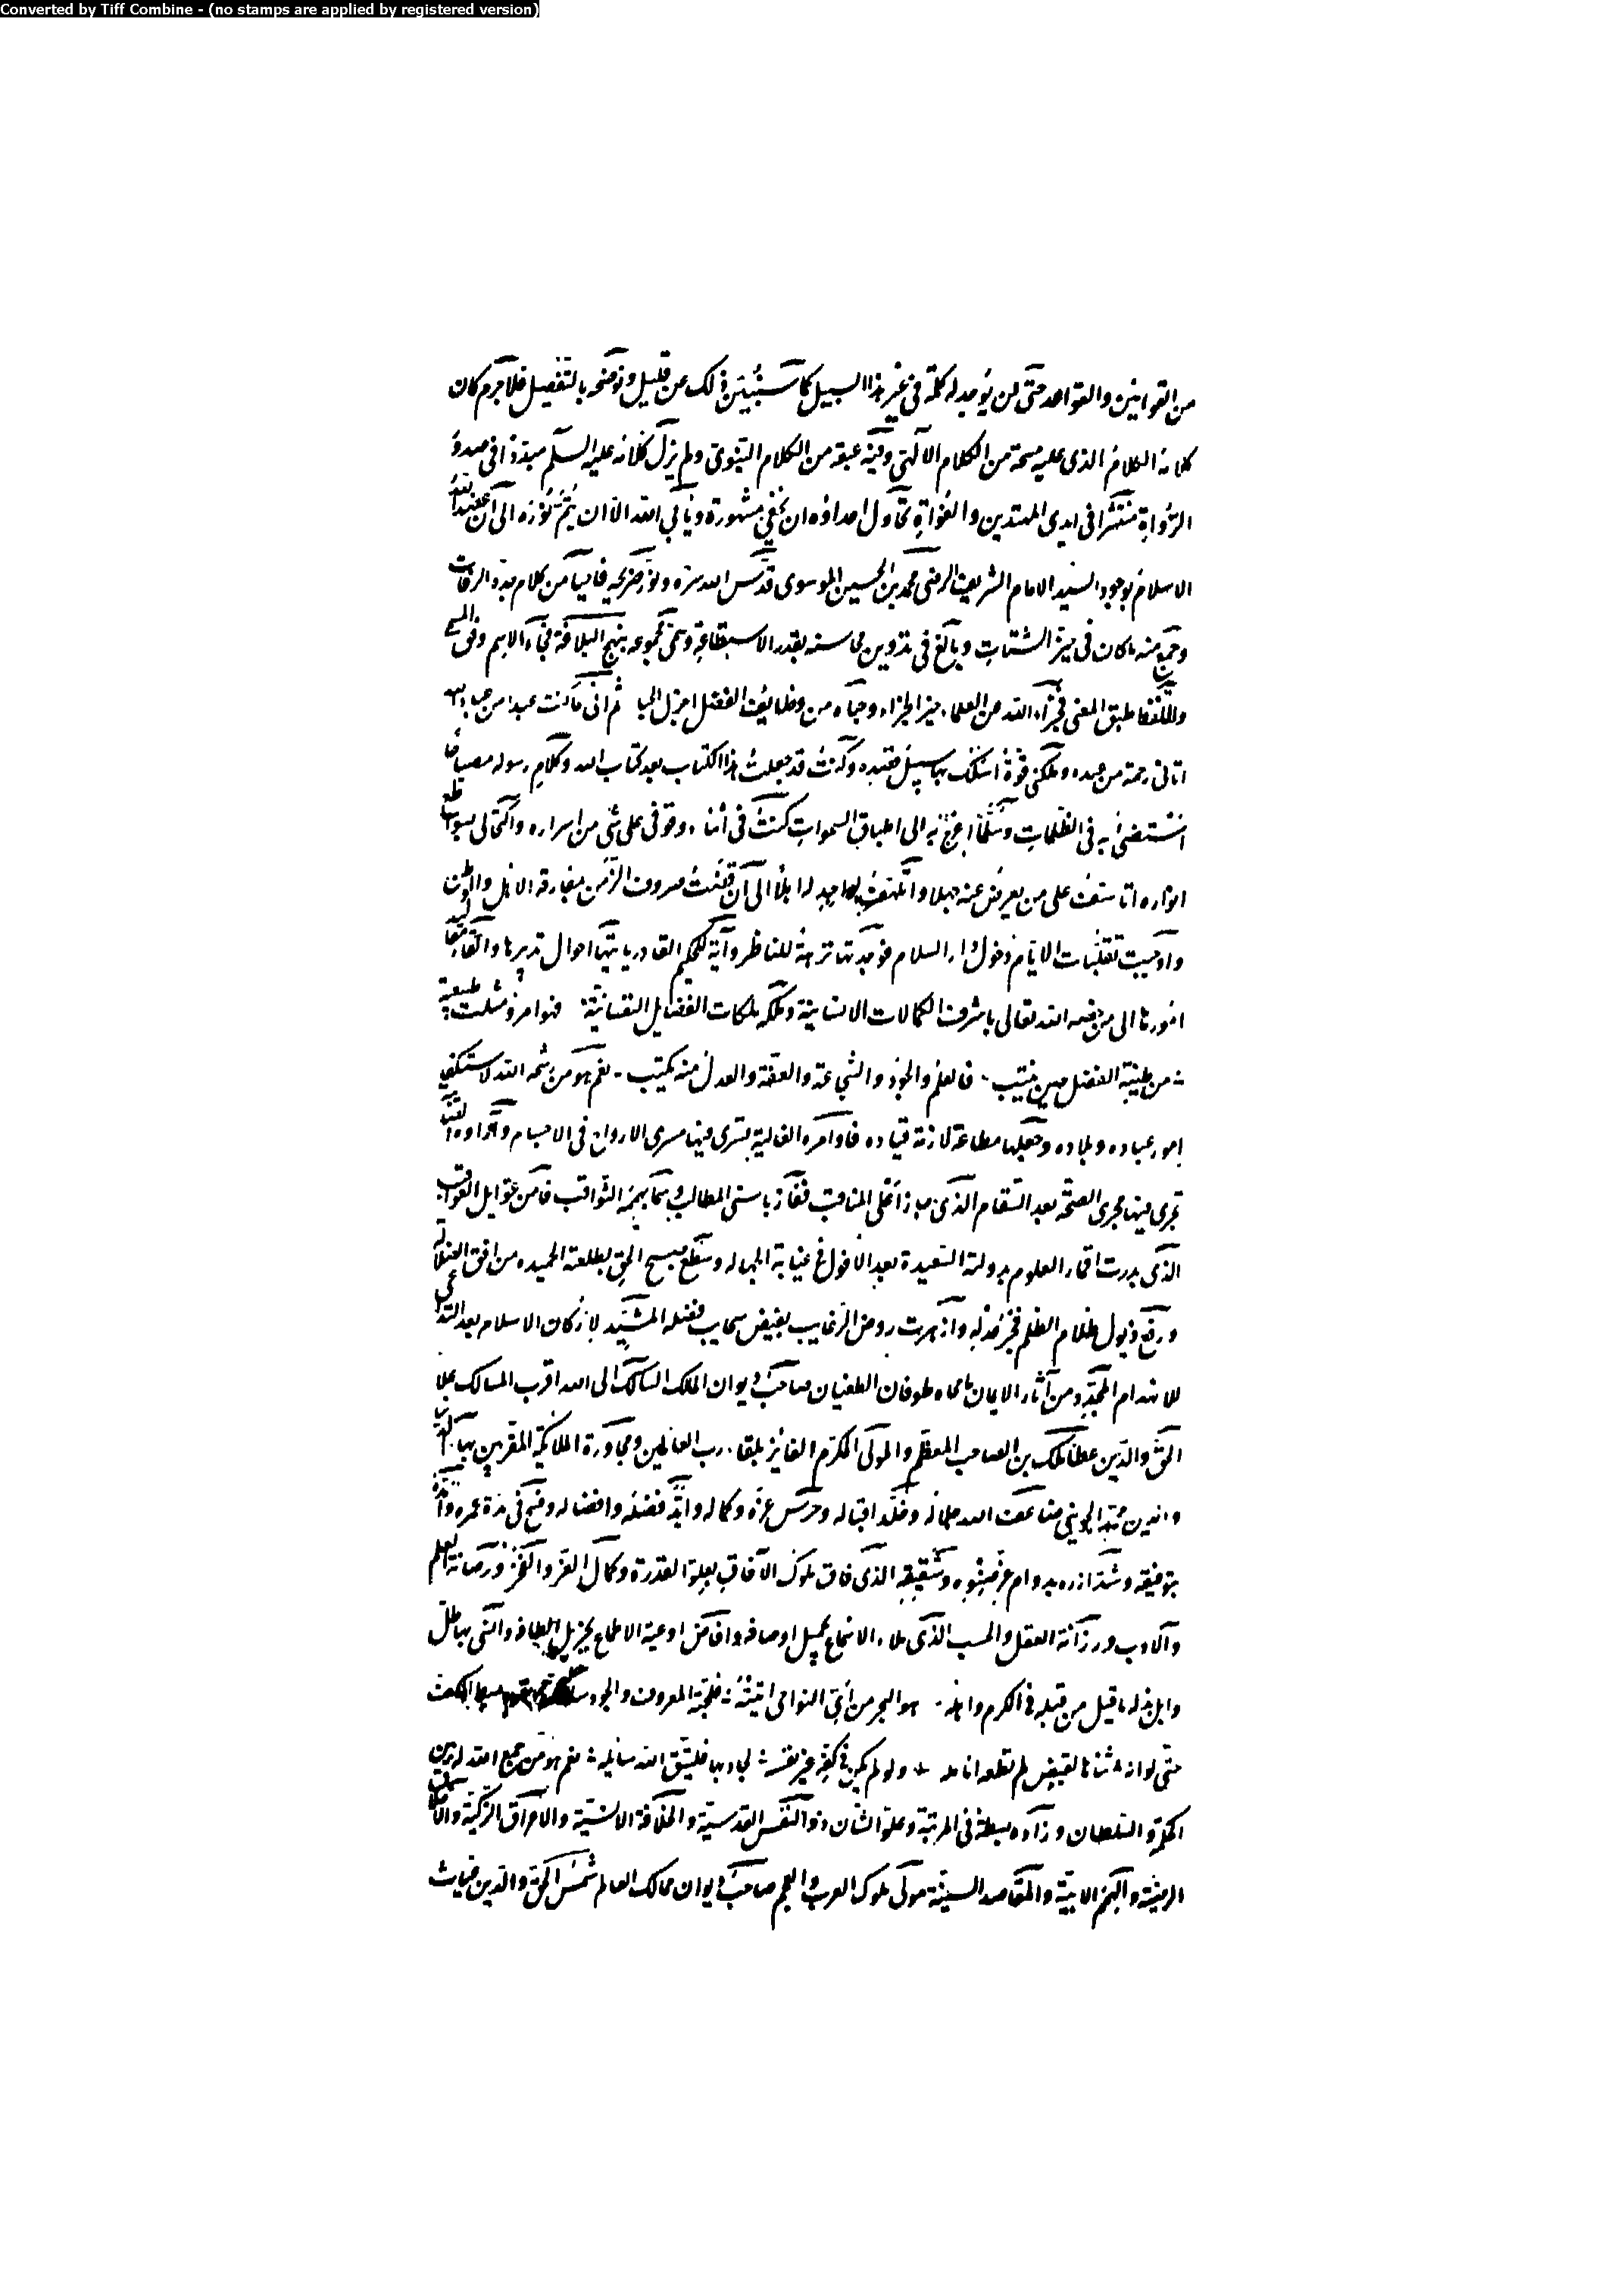 Converted by Tiff Combine - (no stamps are applied by registered version)
من القوانين والقواعد حتى لن يوجد له كلمة في غير هذا السبيل كما سنبين ذلك عن قليل ونوضحه بالتفصيل فلا جرم كان
كلامه الكلام الذى عليه مسحة من الكلام الالهى وفيه عبقة من الكلام النبوى ولم يزل كلامه عليه السلم مبددا فى صدور
الرواة منتشرا فى ايدى المهتدين والغواة تحاول اعداؤه ان تخفى مشهوره ويأبى الله الا ان يتم نوره الى ان
الاسلام بوجود السيد الامام الشريف الرضى محمد بن الحسين الموسوى قدس الله سره ونور ضريحه من كلامه الرفات
وجمع منه ما كان فى حيز الشتات وبالغ فى تدوين محاسنه بقدر الاستطاعة وسمى مجموعه بنهج البلاغة فجاء الاسم وفق المسمى
واللفظ طبق المعنى فجزاه الله عن العلماء خير الجزاء وحباه من وظايف الفضل اجزل الحبا ثم انى ما كنت عبدا من عباد الله
اتانى رحمة من عنده وملكنى قوة اسلك بها سبيل قصده وكنت قد جعلت هذا الكتاب بعد كتاب الله وكلام رسوله مصباحا
استضئ به فى الظلمات وسلما اعرج به الى اطباق السموات كنت فى اثناء وقوفى على شئ من اسراره واكتحالى بسواطع
انواره اتاسف على من يعرض عنه جهلا واتلهف لو اجد له اهلا الى ان قضت صروف الزمن بمفارقة الاهل والوطن
واوجبت تقلبات الايام دخول دار السلام فوجدتها نزهة للناظر وآية للحكيم القادر بانتهاء احوال تدبيرها والقاء مقاليد
امورها الى من خصه الله تعالى باشرف الكمالات الانسانية وملكه ملكات الفضايل النفسانية فهو امرؤ مثلت طبيعته
من طينة الفضل حين ينتسب فالعلم والجود والشجاعة والعفة والعدل منه يكتسب نعم هو من الله لاستكفاء
امور عباده وبلاده وجعلها مطاعة لازمة قياده فاوامره العالية تسرى فيها مسرى الارواح فى الاجسام وآراؤه
تجرى فيها مجرى الصحة بعد السقام الذى حاز اعلى المناقب ففاز باسنى المطالب وسما بهممه الثواقب فامن غوايل العواقب
الذى بدرت اقمار العلوم بدولته السعيدة بعد الافول فى غيابة الجهاله وسطع صبح الحق بطلعته الحميده من افق الضلاله
ورفع ذيول ظلام الظلم فجر عدله وازهرت روض الرغايب بفيض سحايب فضله المشيد لاركان الاسلام بعد التداعى
للانهدام المجدد من آثار الايمان ما محاه طوفان الطغيان صاحب ديوان الملك السالك الى الله اقرب المسالك علاء
الحق والدين عطا ملك بن الصاحب المعظم والمولى المكرم الفايز بلقاء رب العالمين ومجاورة الملائكة المقربين بهاء الدنيا
والدين محمد الجوينى ضاعف الله جلاله وخلد اقباله وحرس عزه وكماله وايد فضله وافضاله وفسح فى مدة عمره وامده
بتوفيقه وشد ازره بدوام عز صنوه وشقيقه الذى فاق ملوك الآفاق بعلو القدرة وكمال العز والفخر ورصانة العلم
والادب ورزانة العقل والحسب الذى ملاء الاسماع بجميل اوصافه وافاض اوعية الاطماع بجزيل الطافه وانسى بهاطل
وابل بذله ما قيل من قبله فى الكرم واهله هو البحر من اى النواحى اتيته فلجته المعروف والجود ساحله تعود بسط الكف
حتى لو انه ثناها لقبض لم تطعه انامله ولو لم يكن فى كفه غير نفسه لجاد بها فليتق الله سايله نعم هو من جمع الله له بين
الحكمة والسلطان وزاده بسطة فى المرتبة وعلو الشان ذو النفس القدسية والخلافة الانسية والاعراق الزكية والاخلاق
الرضية والهمم الابية والمقاصد السنية مولى ملوك العرب والعجم صاحب ديوان ممالك العالم شمس الحق والدين غياث